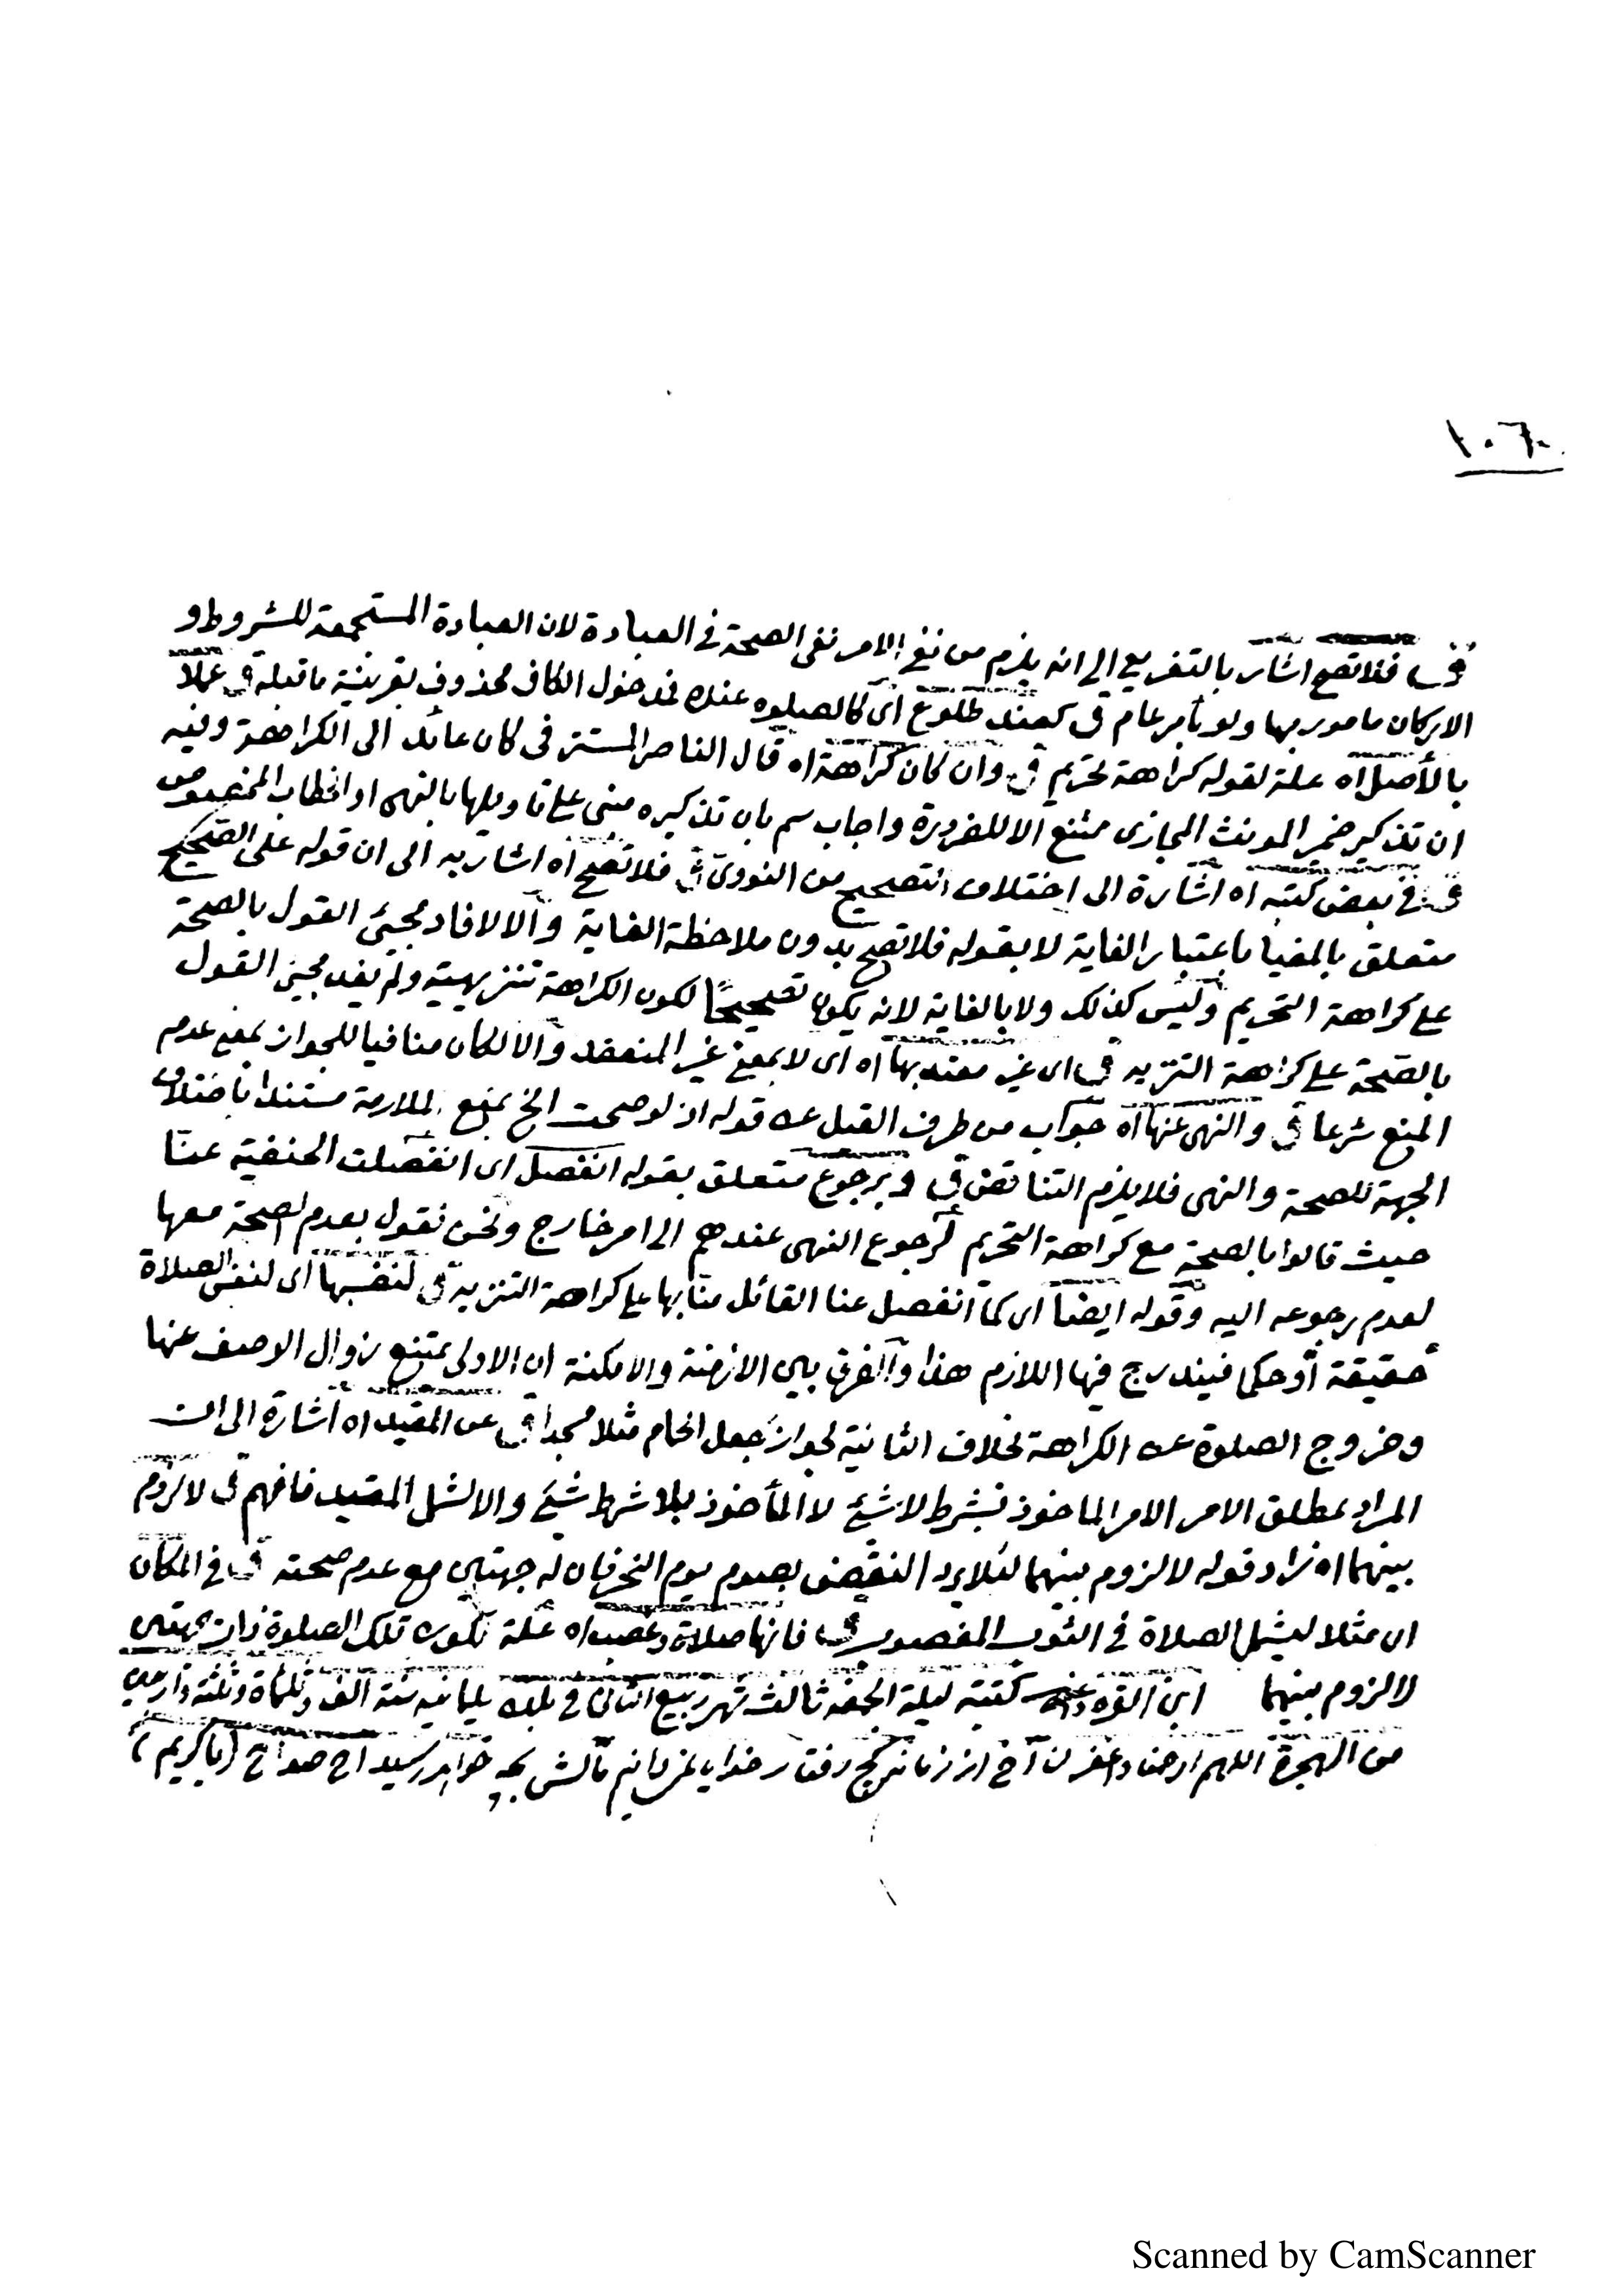 ١٠٦
فلا تصح اشار بالتفريع الى انه يلزم من نفى الامر نفى الصحة فى العبادة لان العبادة المستجمعة للشروط و
الاركان مامور بها ولو بأمر عام ق كعند طلوع اى كالصلوة عنده فمدخول الكاف محذوف بقرينة ما قبله ق عملا
بالأصل اه علة لقوله كراهة تحريم ق وان كان كراهة اه قال الناصر المستتر فى كان عائد الى الكراهة وفيه
ان تذكير ضمير المونث المجازى ممتنع الا للضرورة واجاب سم بان تذكيره مبنى على تاويلها بالنهى او الخطاب المخصوص
ق فى بعض كتبه اه اشارة الى اختلاف التصحيح من النووى ق فلا تصح اه اشار به الى ان قوله على الصحيح
متعلق بالمغيا باعتبار الغاية لا بقوله فلا تصح بدون ملاحظة الغاية والا لافاد مجيئ القول بالصحة
على كراهة التحريم وليس كذلك ولا بالغاية لانه يكون تصحيحًا لكون الكراهة تنزيهية ولم يفد مجيئ القول
بالصحة على كراهة التنزيه ق اى غير معتد بها اه اى لا بمعنى غير المنعقد والا لكان منافيا للجواز بمعنى عدم
المنع شرعا ق والنهى عنها اه جواب من طرف القيل عن قوله اذ لو صحت الخ بمنع الملازمة مستندا باختلاف
الجهة للصحة والنهى فلا يلزم التناقض ق وبرجوع متعلق بقوله انفصل اى انفصلت الحنفية عنا
حيث قالوا بالصحة مع كراهة التحريم لرجوع النهى عندهم الى امر خارج ونحن نقول بعدم الصحة معها
لعدم رجوعه اليه وقوله ايضا اى كما انفصل عنا القائل منا بها على كراهة التنزيه ق لنفسها اى لنفس الصلاة
حقيقة أو حكما فيندرج فيها اللازم هذا والفرق بين الازمنة والامكنة ان الاولى يمتنع زوال الوصف عنها
وخروج الصلوة عن الكراهة بخلاف الثانية لجواز جعل الحمام مثلا مسجدا ق عن المقيد اه اشارة الى ان
المراد بمطلق الامر الامر الماخوذ بشرط لا شيئ لا المأخوذ بلا شرط شيئ والا لشمل المقيد فافهم ق لا لزوم
بينهما اه زاد قوله لا لزوم بينهما لئلا يرد النقض بصوم يوم النحر فان له جهتين مع عدم صحته ق فى المكان
اى مثلا ليشمل الصلاة فى الثوب المغصوب ق فانها صلاة وغصب اه علة لكون تلك الصلوة ذات جهتين
لا لزوم بينهما ابن القره داغى كتبته ليلة الجمعة ثالث شهر ربيع الثانى فى بلدة سنة الف وثلثمأة وثلثة
من الهجرة اللهم ارحمنا واغفر لنا (يا كريم)
Scanned by CamScanner